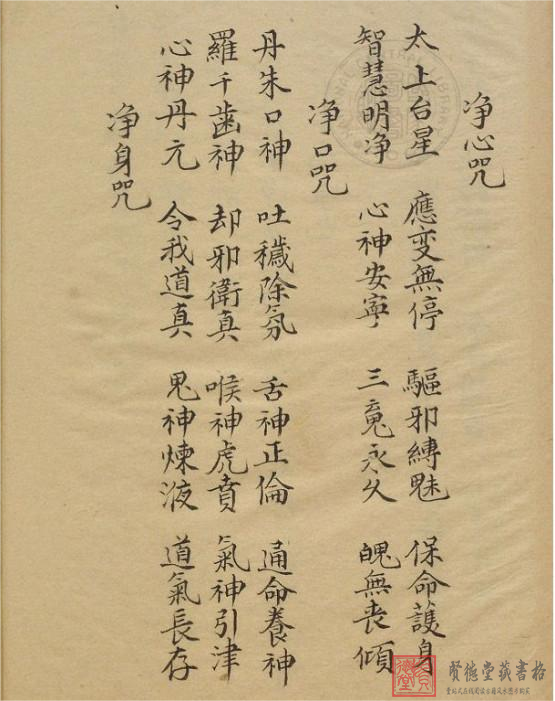 净心咒
太上台星 應变無停 驅邪縛魅 保命護身
智慧明净 心神安寧 三䰟永久 魄無丧傾
净口咒
丹朱口神 吐穢除氛 舌神正倫 通命養神
羅千齒神 却邪衛真 喉神虎賁 氣神引津
心神丹元 令我道真 鬼神煉液 道氣長存
净身咒
賢德堂荻書格